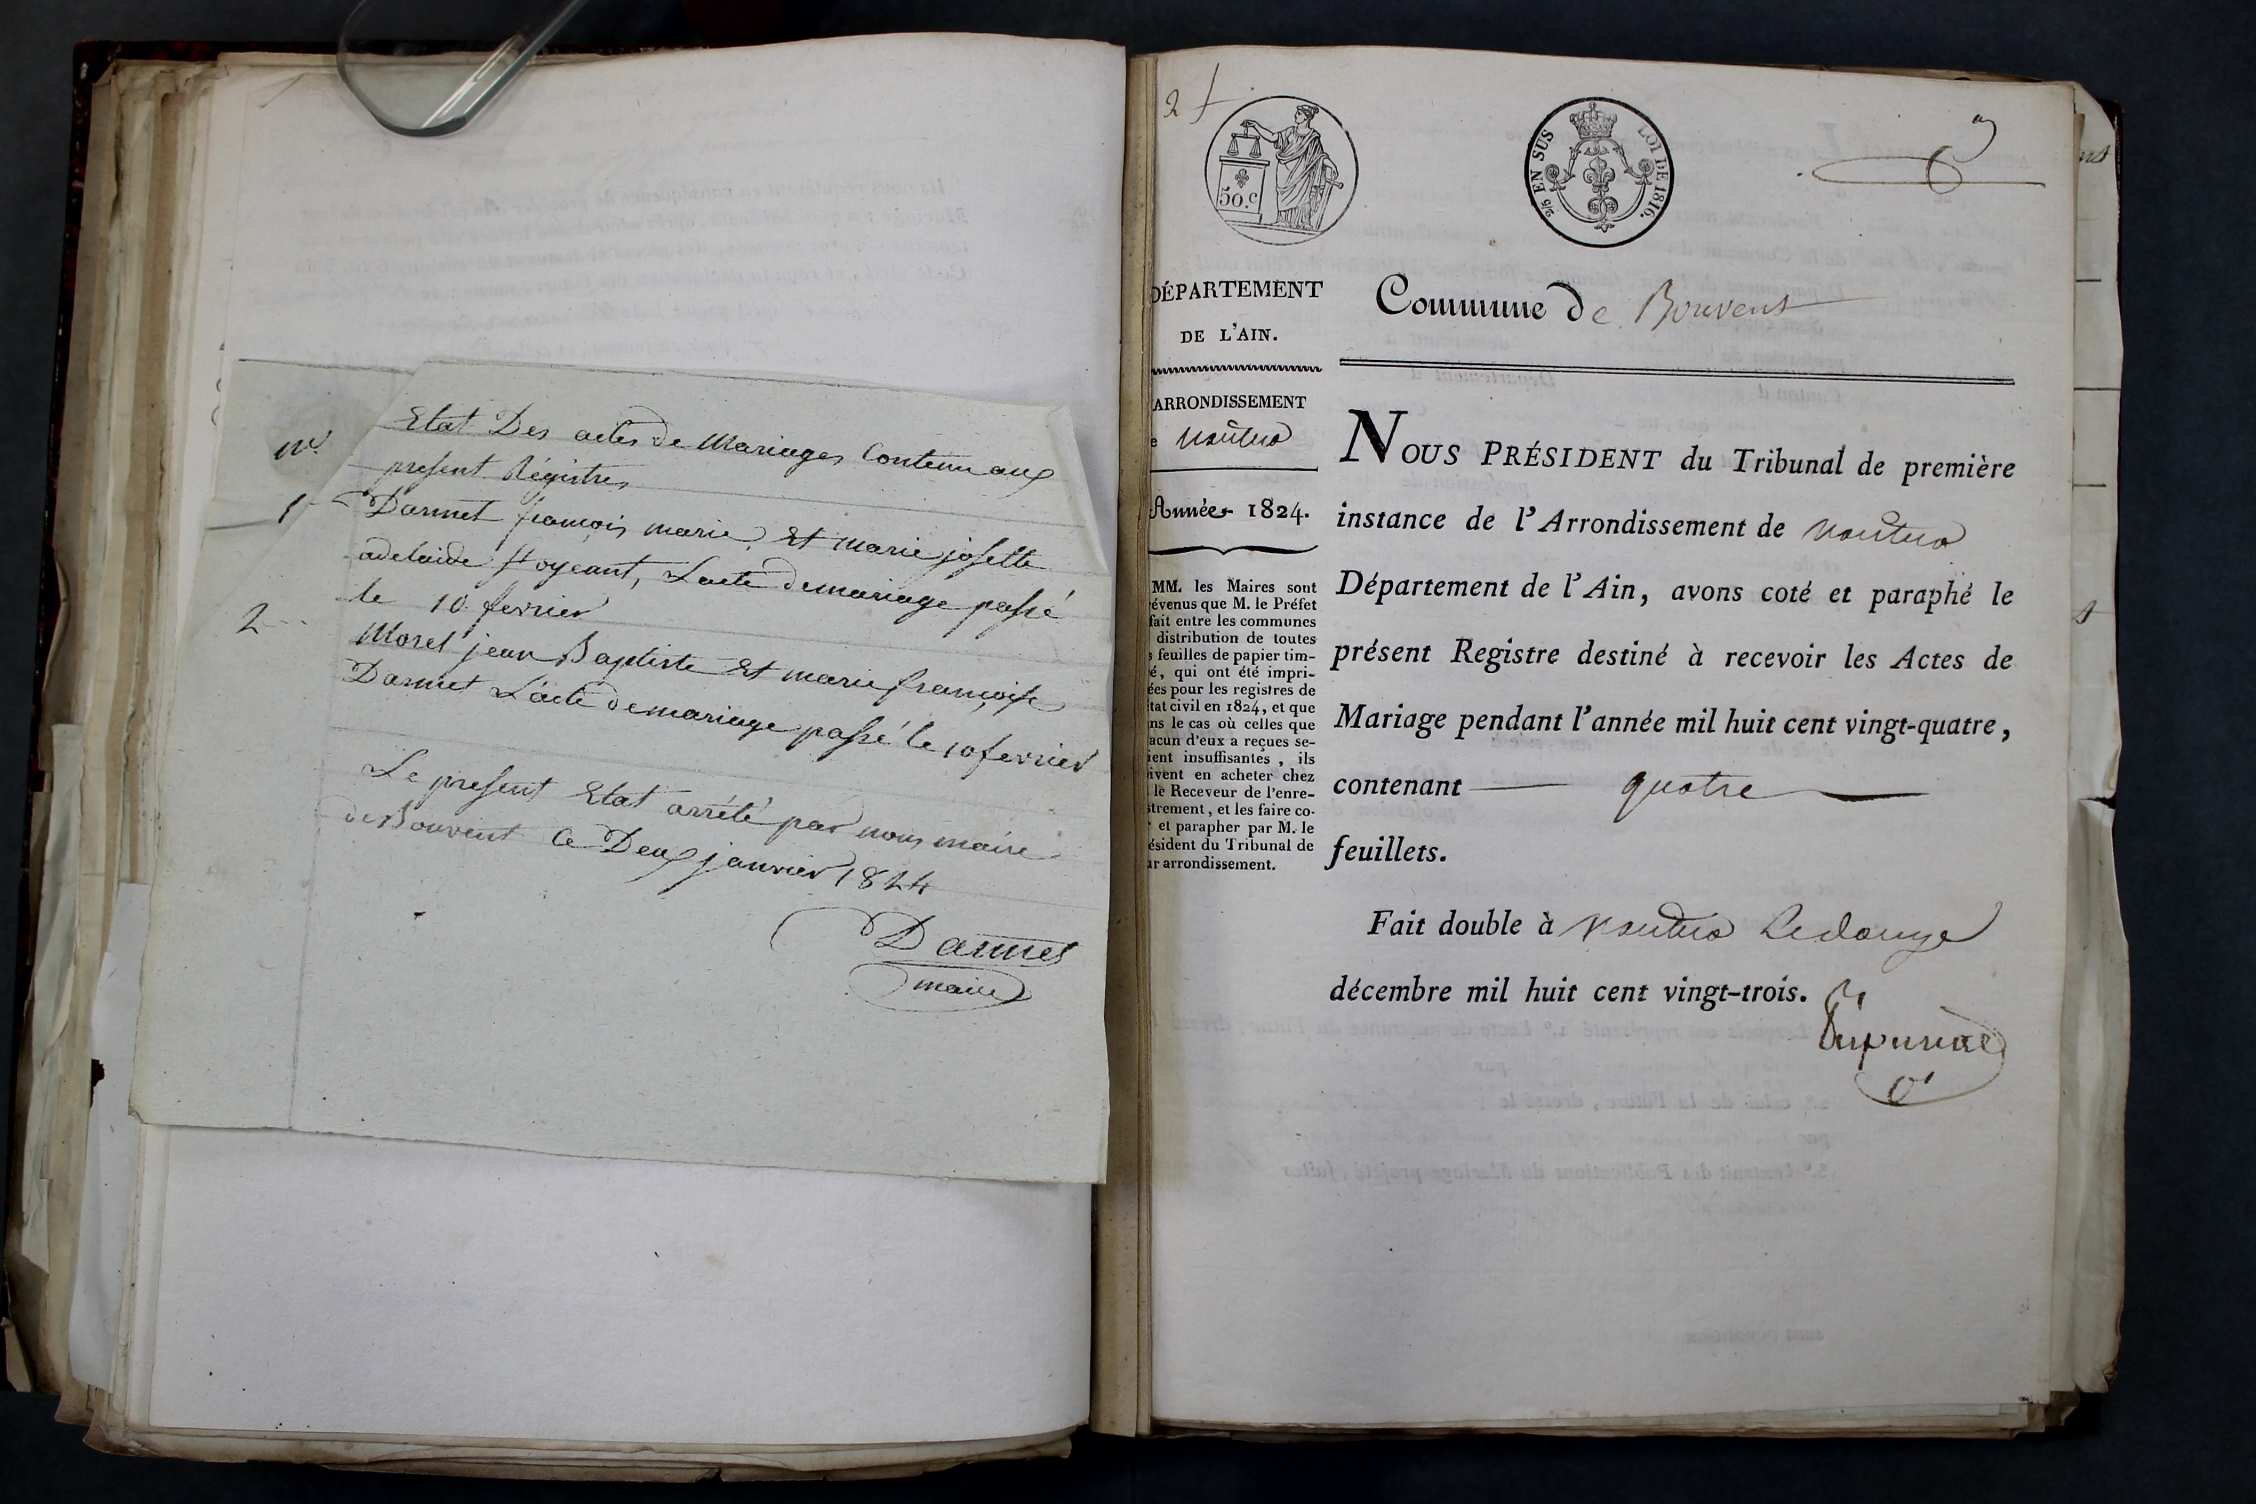 Etat Des actes de Mariages Contenu aux
present Régistres
nos
1
Darmet françois marie, Et marie josette
adelaide hoyeant, Lacte de mariage passé
le 10 fevrier
2
Morel jean Baptiste Et marie françoise
Darmet L'acte de mariage passé le 10 fevrier
Le present Etat arrété par nous maire
de Bouvent le Deux janvier 1824
Darmet
maire
2
50.c
2/5 EN SUS
LOI DE 1816.
DÉPARTEMENT
DE L'AIN.
ARRONDISSEMENT
e Nantua
Année 1824.
MM. les Maires sont
révenus que M. le Préfet
fait entre les communes
distribution de toutes
s feuilles de papier tim-
é, qui ont été impri-
ées pour les registres de
état civil en 1824, et que
ns le cas où celles que
acun d'eux a reçues se-
ient insuffisantes, ils
ivent en acheter chez
le Receveur de l'enre-
strement, et les faire co-
r et parapher par M. le
ésident du Tribunal de
ur arrondissement.
Commune de Bouvent
NOUS PRÉSIDENT du Tribunal de première
instance de l'Arrondissement de Nantua
Département de l'Ain, avons coté et paraphé le
présent Registre destiné à recevoir les Actes de
Mariage pendant l'année mil huit cent vingt-quatre,
contenant quatre
feuillets.
Fait double à Nantua Le douze
décembre mil huit cent vingt-trois.